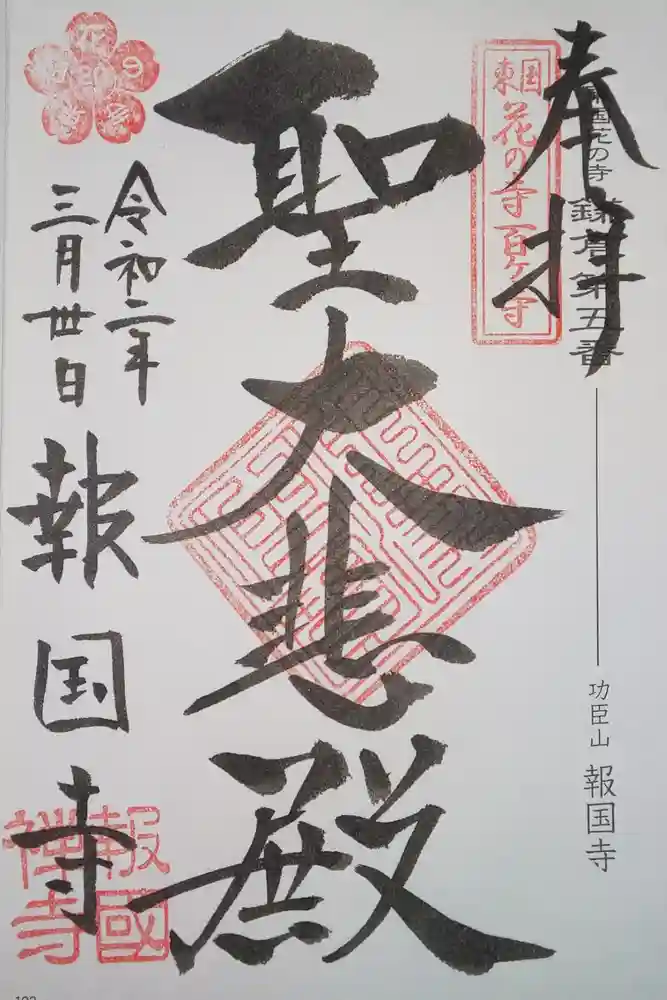 奉拝
東国花の寺 鎌倉第五番
功臣山 報国寺
東国
花の寺百ヶ寺
聖大悲殿
令和二年
三月卅日
報国寺
報國
禅寺
103